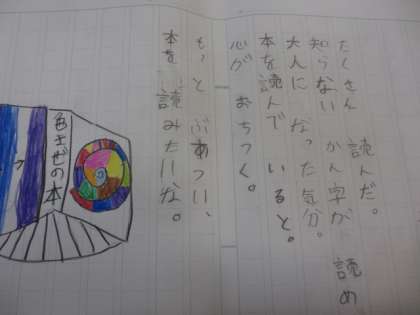 たくさん 読んだ。
知らない かん字が 読め
大人に なった気分。
本を読んで いると。
心が おちつく。
もっと ぶあつい、
本を 読みたいな。
色まぜの本